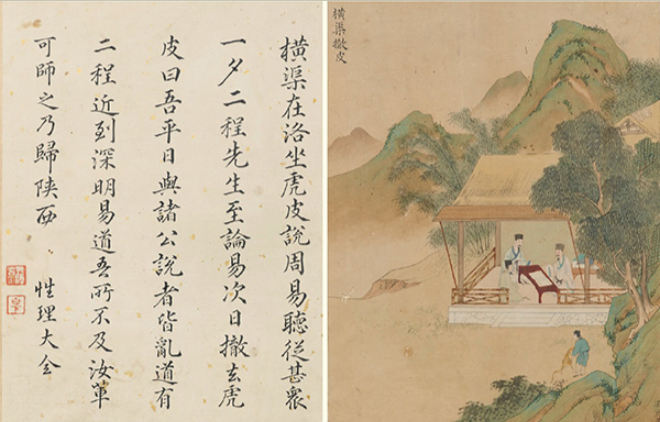 橫渠在洛坐虎皮說周易聽從甚眾
一夕二程先生至論易次日撤去虎
皮曰吾平日與諸公說者皆亂道有
二程近到深明易道吾所不及汝輩
可師之乃歸陝西
性理大全
橫渠撤皮